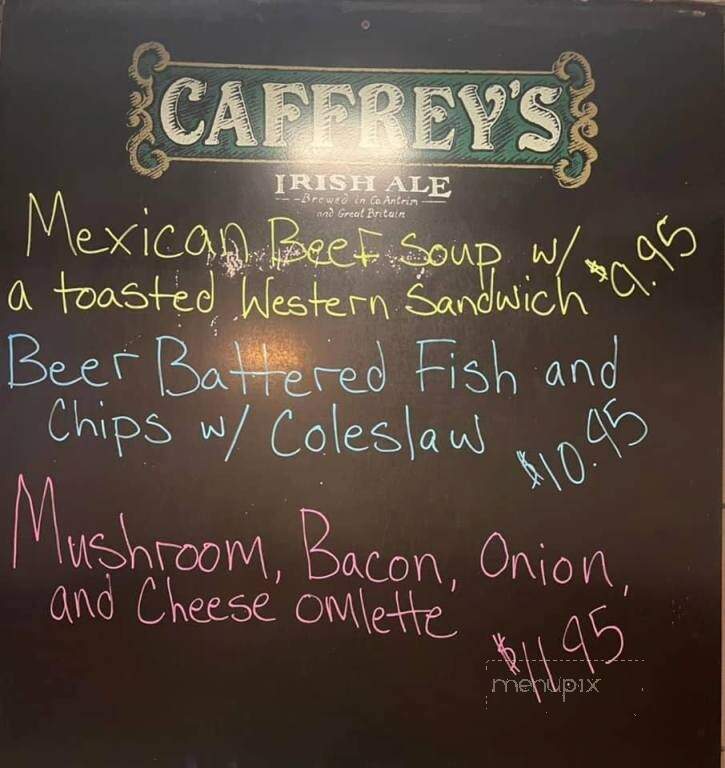 CAFFREY'S
IRISH ALE
Brewed in Co. Antrim
and Great Britain
Mexican Beef Soup w/
a toasted Western Sandwich $9.95
Beer Battered Fish and
Chips w/ Coleslaw $10.95
Mushroom, Bacon, Onion,
and Cheese omlette
$11.95
menupix